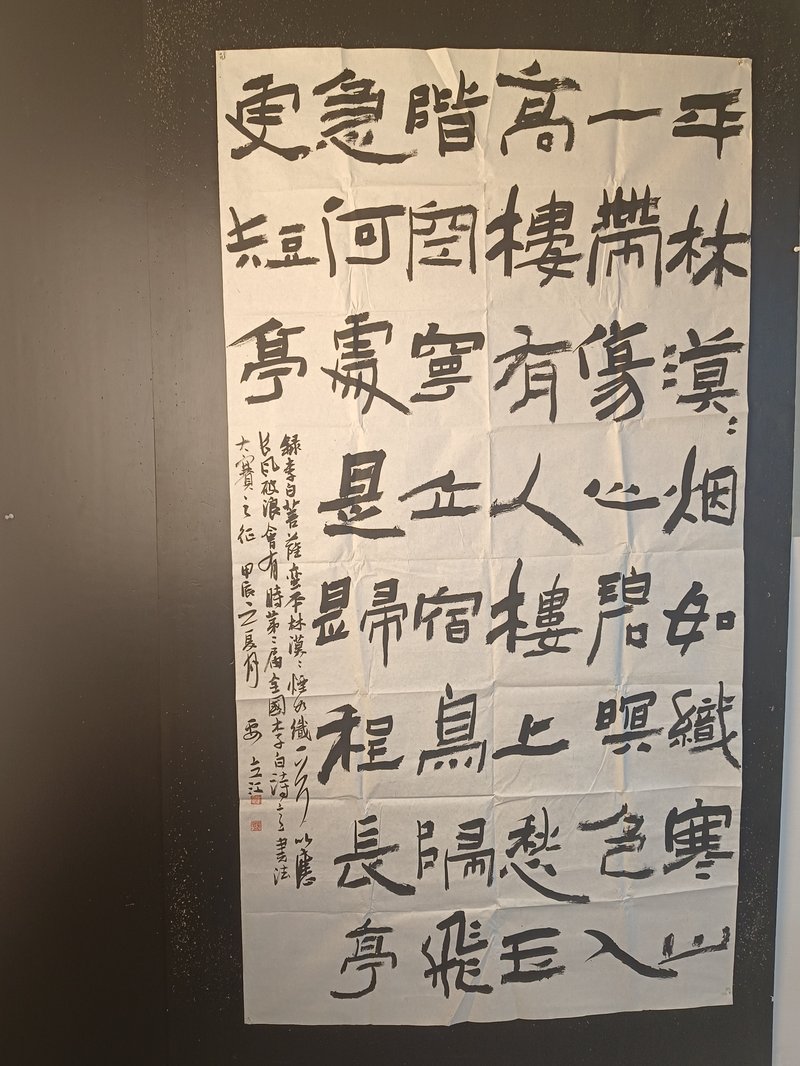 平林漠〻烟如織寒山
一帶傷心碧暝色入
高樓有人樓上愁玉
階空寧立宿鳥歸飛
急何處是歸程長亭
更短亭
錄李白菩薩蠻平林漠〻煙如織一首以應
長風破浪會有時第二届全國李白詩之書法
大賽之征 甲辰之夏月 立江